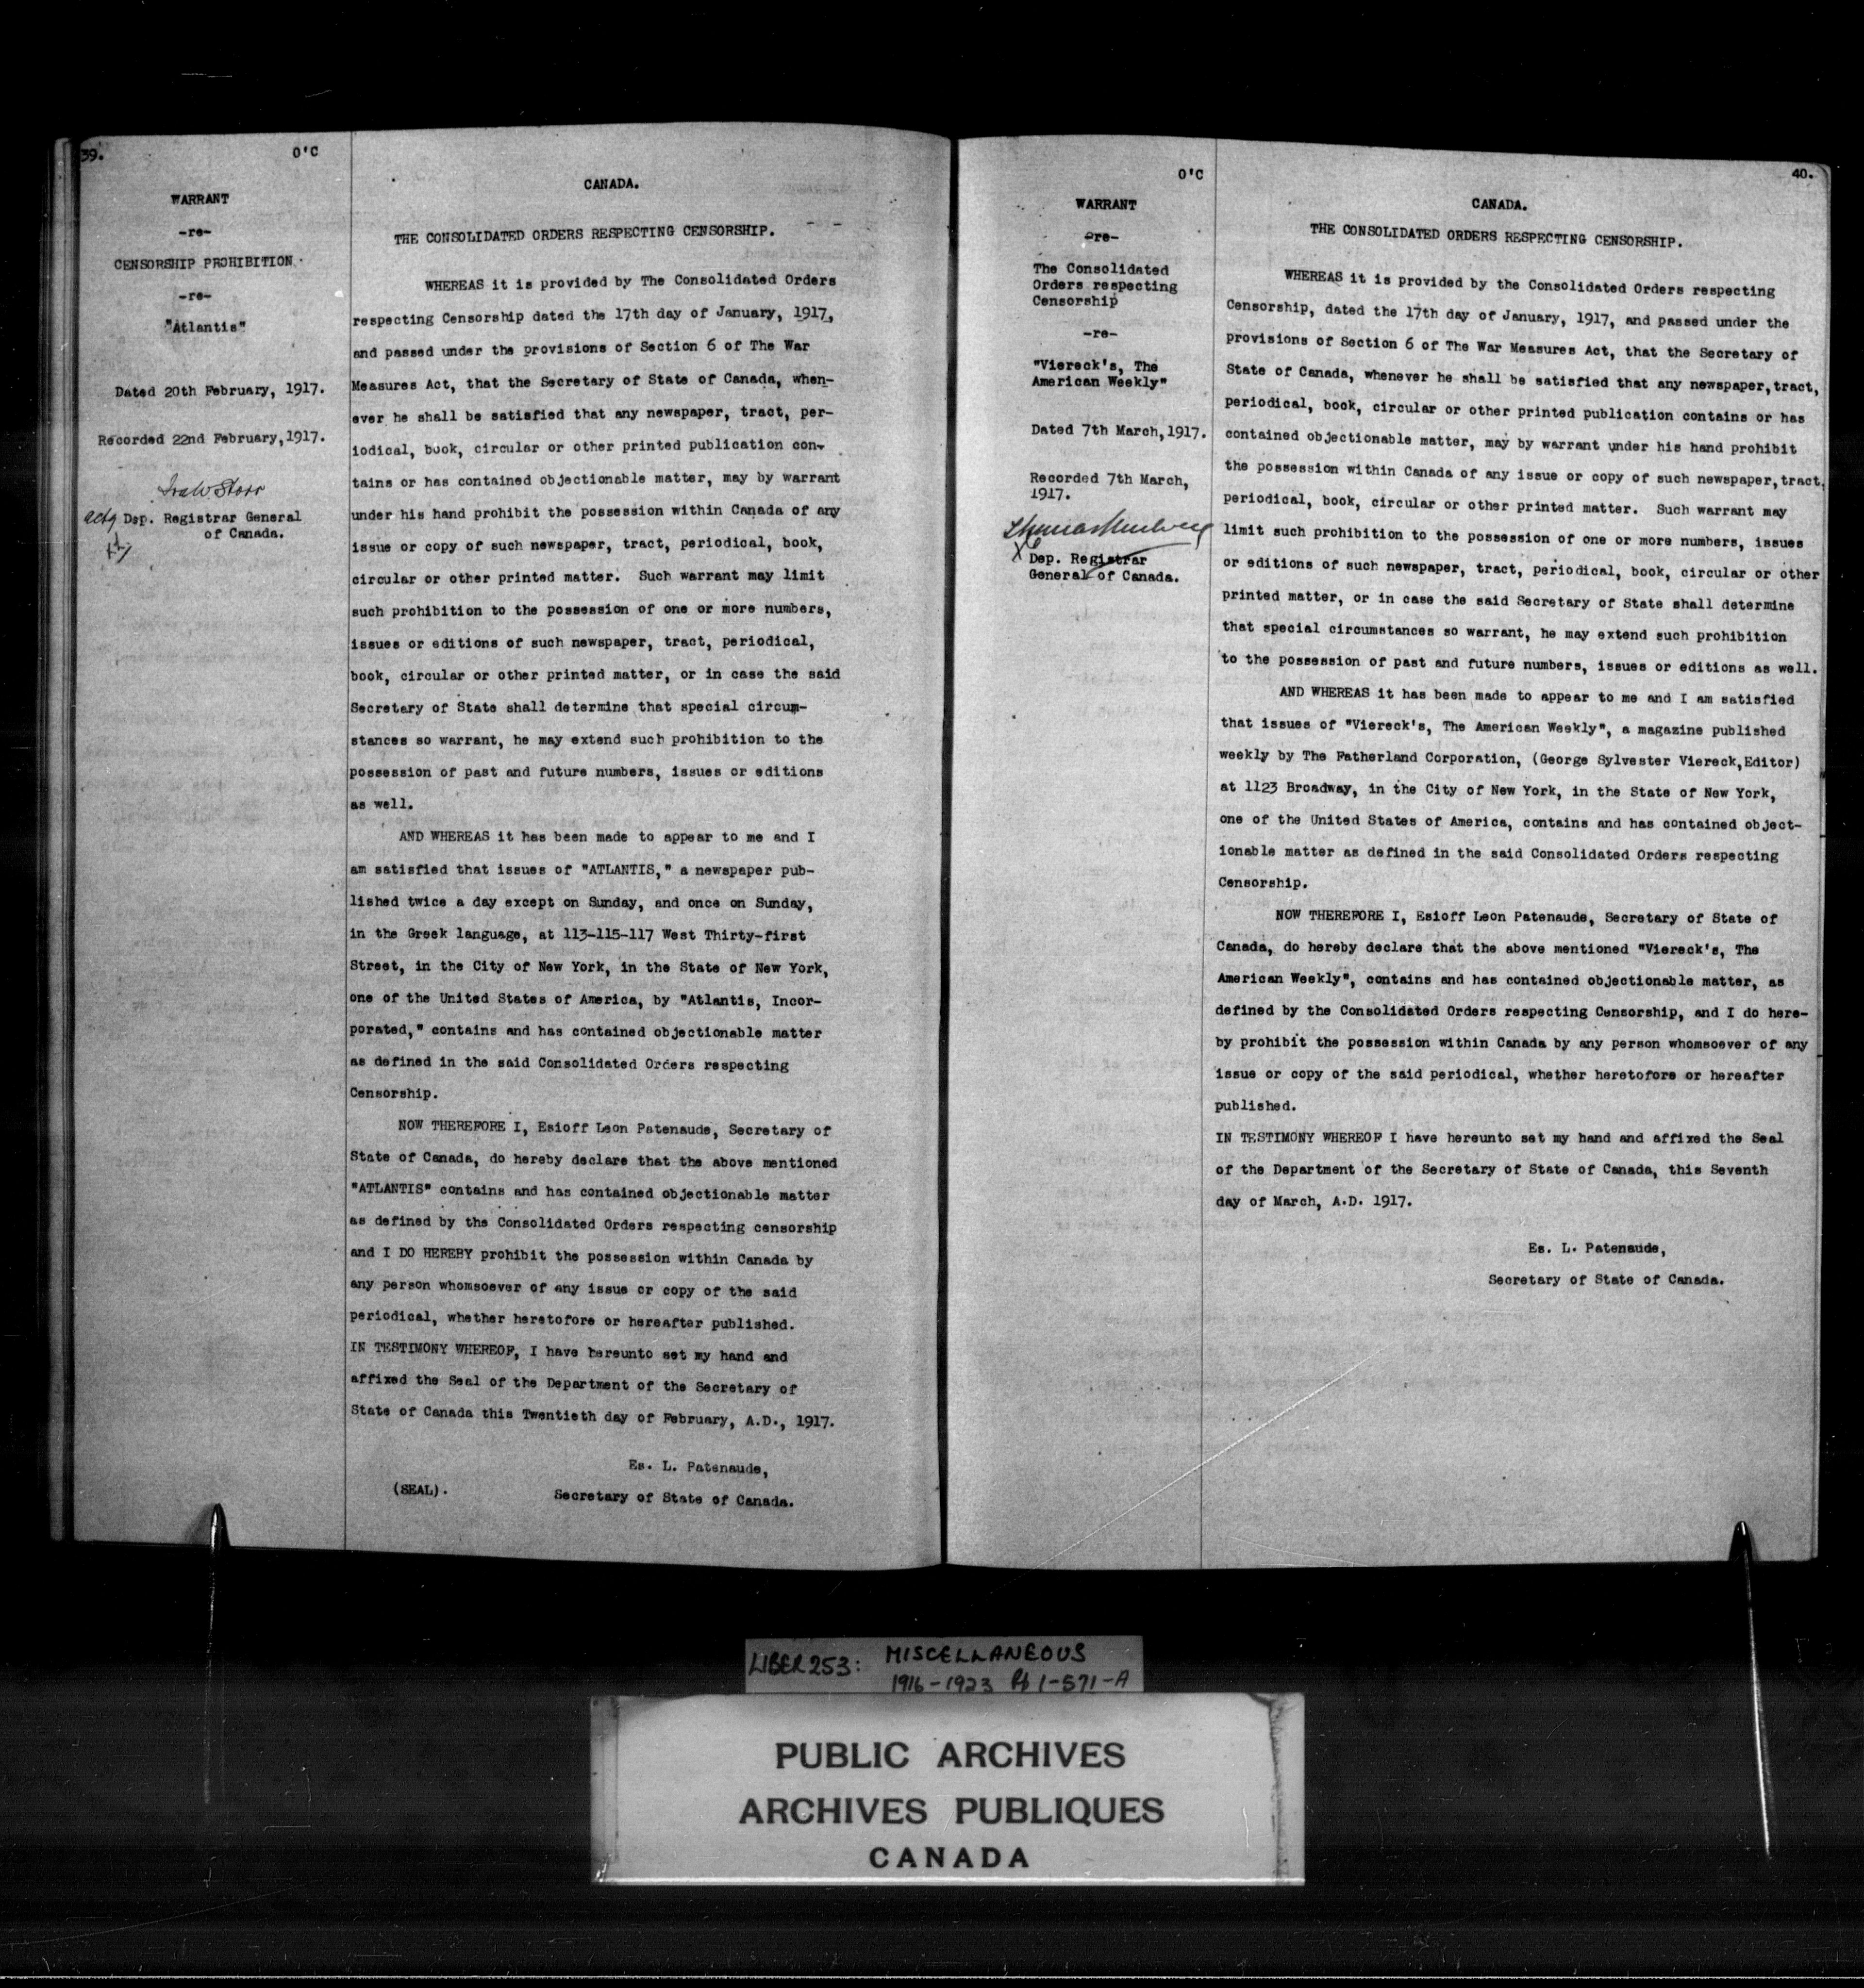 39.
O'C
WARRANT
-re-
CENSORSHIP PROHIBITION
-re-
"Atlantis"
Dated 20th February, 1917.
Recorded 22nd February,1917.
actg Dep. Registrar General
of Canada.
CANADA.
THE CONSOLIDATED ORDERS RESPECTING CENSORSHIP.
WHEREAS it is provided by The Consolidated Orders
respecting Censorship dated the 17th day of January, 1917,
and passed under the provisions of Section 6 of The War
Measures Act, that the Secretary of State of Canada, when-
ever he shall be satisfied that any newspaper, tract, per-
iodical, book, circular or other printed publication con-
tains or has contained objectionable matter, may by warrant
under his hand prohibit the possession within Canada of any
issue or copy of such newspaper, tract, periodical, book,
circular or other printed matter. Such warrant may limit
such prohibition to the possession of one or more numbers,
issues or editions of such newspaper, tract, periodical,
book, circular or other printed matter, or in case the said
Secretary of State shall determine that special circum-
stances so warrant, he may extend such prohibition to the
possession of past and future numbers, issues or editions
as well.
AND WHEREAS it has been made to appear to me and I
am satisfied that issues of "ATLANTIS," a newspaper pub-
lished twice a day except on Sunday, and once on Sunday,
in the Greek language, at 113-115-117 West Thirty-first
Street, in the City of New York, in the State of New York,
one of the United States of America, by "Atlantis, Incor-
porated," contains and has contained objectionable matter
as defined in the said Consolidated Orders respecting
Censorship.
NOW THEREFORE I, Esioff Leon Patenaude, Secretary of
State of Canada, do hereby declare that the above mentioned
"ATLANTIS" contains and has contained objectionable matter
as defined by the Consolidated Orders respecting censorship
and I DO HEREBY prohibit the possession within Canada by
any person whomsoever of any issue or copy of the said
periodical, whether heretofore or hereafter published.
IN TESTIMONY WHEREOF, I have hereunto set my hand and
affixed the Seal of the Department of the Secretary of
State of Canada this Twentieth day of February, A.D., 1917.
Es. L. Patenaude,
(SEAL).
Secretary of State of Canada.
O'C
40.
WARRANT
-re-
The Consolidated
Orders respecting
Censorship
-re-
"Viereck's, The
American Weekly"
Dated 7th March,1917.
Recorded 7th March,
1917.
Dep. Registrar
General of Canada.
CANADA.
THE CONSOLIDATED ORDERS RESPECTING CENSORSHIP.
WHEREAS it is provided by the Consolidated Orders respecting
Censorship, dated the 17th day of January, 1917, and passed under the
provisions of Section 6 of The War Measures Act, that the Secretary of
State of Canada, whenever he shall be satisfied that any newspaper,tract,
periodical, book, circular or other printed publication contains or has
contained objectionable matter, may by warrant under his hand prohibit
the possession within Canada of any issue or copy of such newspaper,tract,
periodical, book, circular or other printed matter. Such warrant may
limit such prohibition to the possession of one or more numbers, issues
or editions of such newspaper, tract, periodical, book, circular or other
printed matter, or in case the said Secretary of State shall determine
that special circumstances so warrant, he may extend such prohibition
to the possession of past and future numbers, issues or editions as well.
AND WHEREAS it has been made to appear to me and I am satisfied
that issues of "Viereck's, The American Weekly", a magazine published
weekly by The Fatherland Corporation, (George Sylvester Viereck,Editor)
at 1123 Broadway, in the City of New York, in the State of New York,
one of the United States of America, contains and has contained object-
ionable matter as defined in the said Consolidated Orders respecting
Censorship.
NOW THEREFORE I, Esioff Leon Patenaude, Secretary of State of
Canada, do hereby declare that the above mentioned "Viereck's, The
American Weekly", contains and has contained objectionable matter, as
defined by the Consolidated Orders respecting Censorship, and I do here-
by prohibit the possession within Canada by any person whomsoever of any
issue or copy of the said periodical, whether heretofore or hereafter
published.
IN TESTIMONY WHEREOF I have hereunto set my hand and affixed the Seal
of the Department of the Secretary of State of Canada, this Seventh
day of March, A.D. 1917.
Es. L. Patenaude,
Secretary of State of Canada.
LIBER 253: MISCELLANEOUS
1916-1923 Pp 1-571-A
PUBLIC ARCHIVES
ARCHIVES PUBLIQUES
CANADA